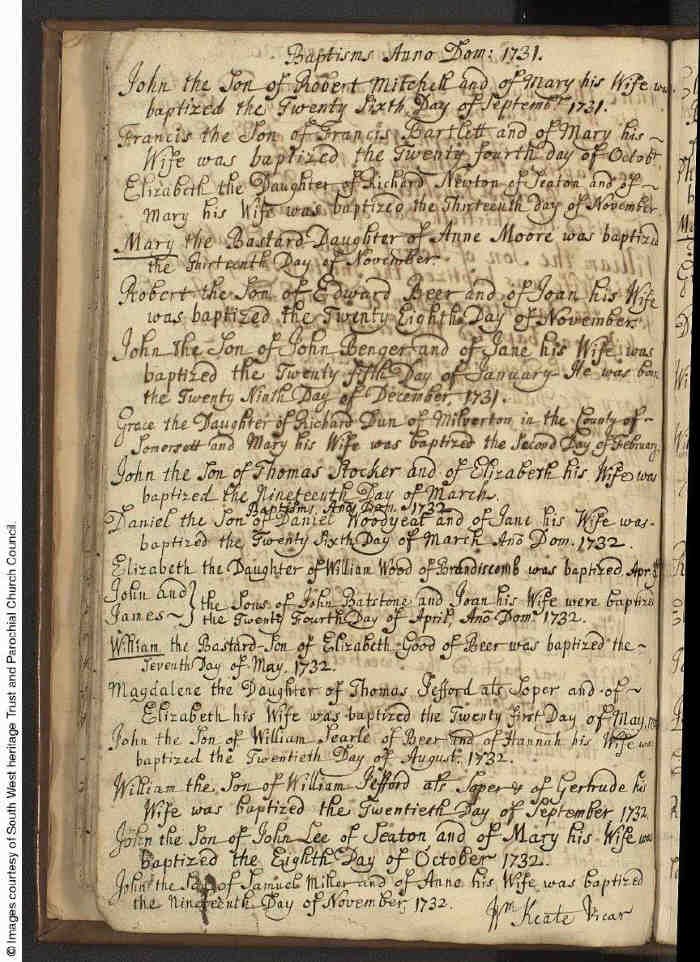 Baptisms Anno Dom: 1731.
John the Son of Robert Mitchell and of Mary his Wife
baptized the Twenty Sixth Day of Septembr 1731.
Francis the Son of Francis Bartlett and of Mary his ~
Wife was baptized the Twenty fourth day of Octobr
Elizabeth the Daughter of Richard Newton of Seaton and of ~
Mary his Wife was baptized the Thirteenth day of November
Mary the Bastard Daughter of Anne Moore was baptized
the Thirteenth Day of November.
Robert the Son of Edward Beer and of Joan his Wife
was baptized the Twenty Eighth Day of November.
John the Son of John Benger and of Jane his Wife was
baptized the Twenty fifth Day of January He was born
the Twenty Ninth Day of December 1731.
Grace the Daughter of Richard Dun of Milverton in the County of ~
Somersett and Mary his Wife was baptized the Second Day of February
John the Son of Thomas Stocker and of Elizabeth his Wife was
baptized the Nineteenth Day of March.
Baptisms Ano Dom. 1732
Daniel the Son of Daniel Woodyeat and of Jane his Wife was
baptized the Twenty Sixth Day of March Ano Dom: 1732.
Elizabeth the Daughter of William Wood of Brandiscomb was baptized Apr
John and } the Sons of John Batstone and Joan his Wife were baptiz
James ~ } the Twenty Fourth Day of April Ano Dom 1732.
William the Bastard Son of Elizabeth Good of Beer was baptized the ~
Seventh Day of May 1732.
Magdalene the Daughter of Thomas Jefford als Soper and of ~
Elizabeth his Wife was baptized the Twenty first Day of May,
John the Son of William Searle of Beer and of Hannah his Wife
baptized the Twentieth Day of August, 1732.
William the Son of William Jefford als Soper & of Gertrude his
Wife was baptized the Twentieth Day of September 1732
John the Son of John Lee of Seaton and of Mary his Wife was
baptized the Eighth Day of October 1732.
John the Son of Samuel Miller and of Anne his Wife was baptized
the Nineteenth Day of November, 1732.
Wm Keate Vicar
© Images courtesy of South West heritage Trust and Parochial Church Council